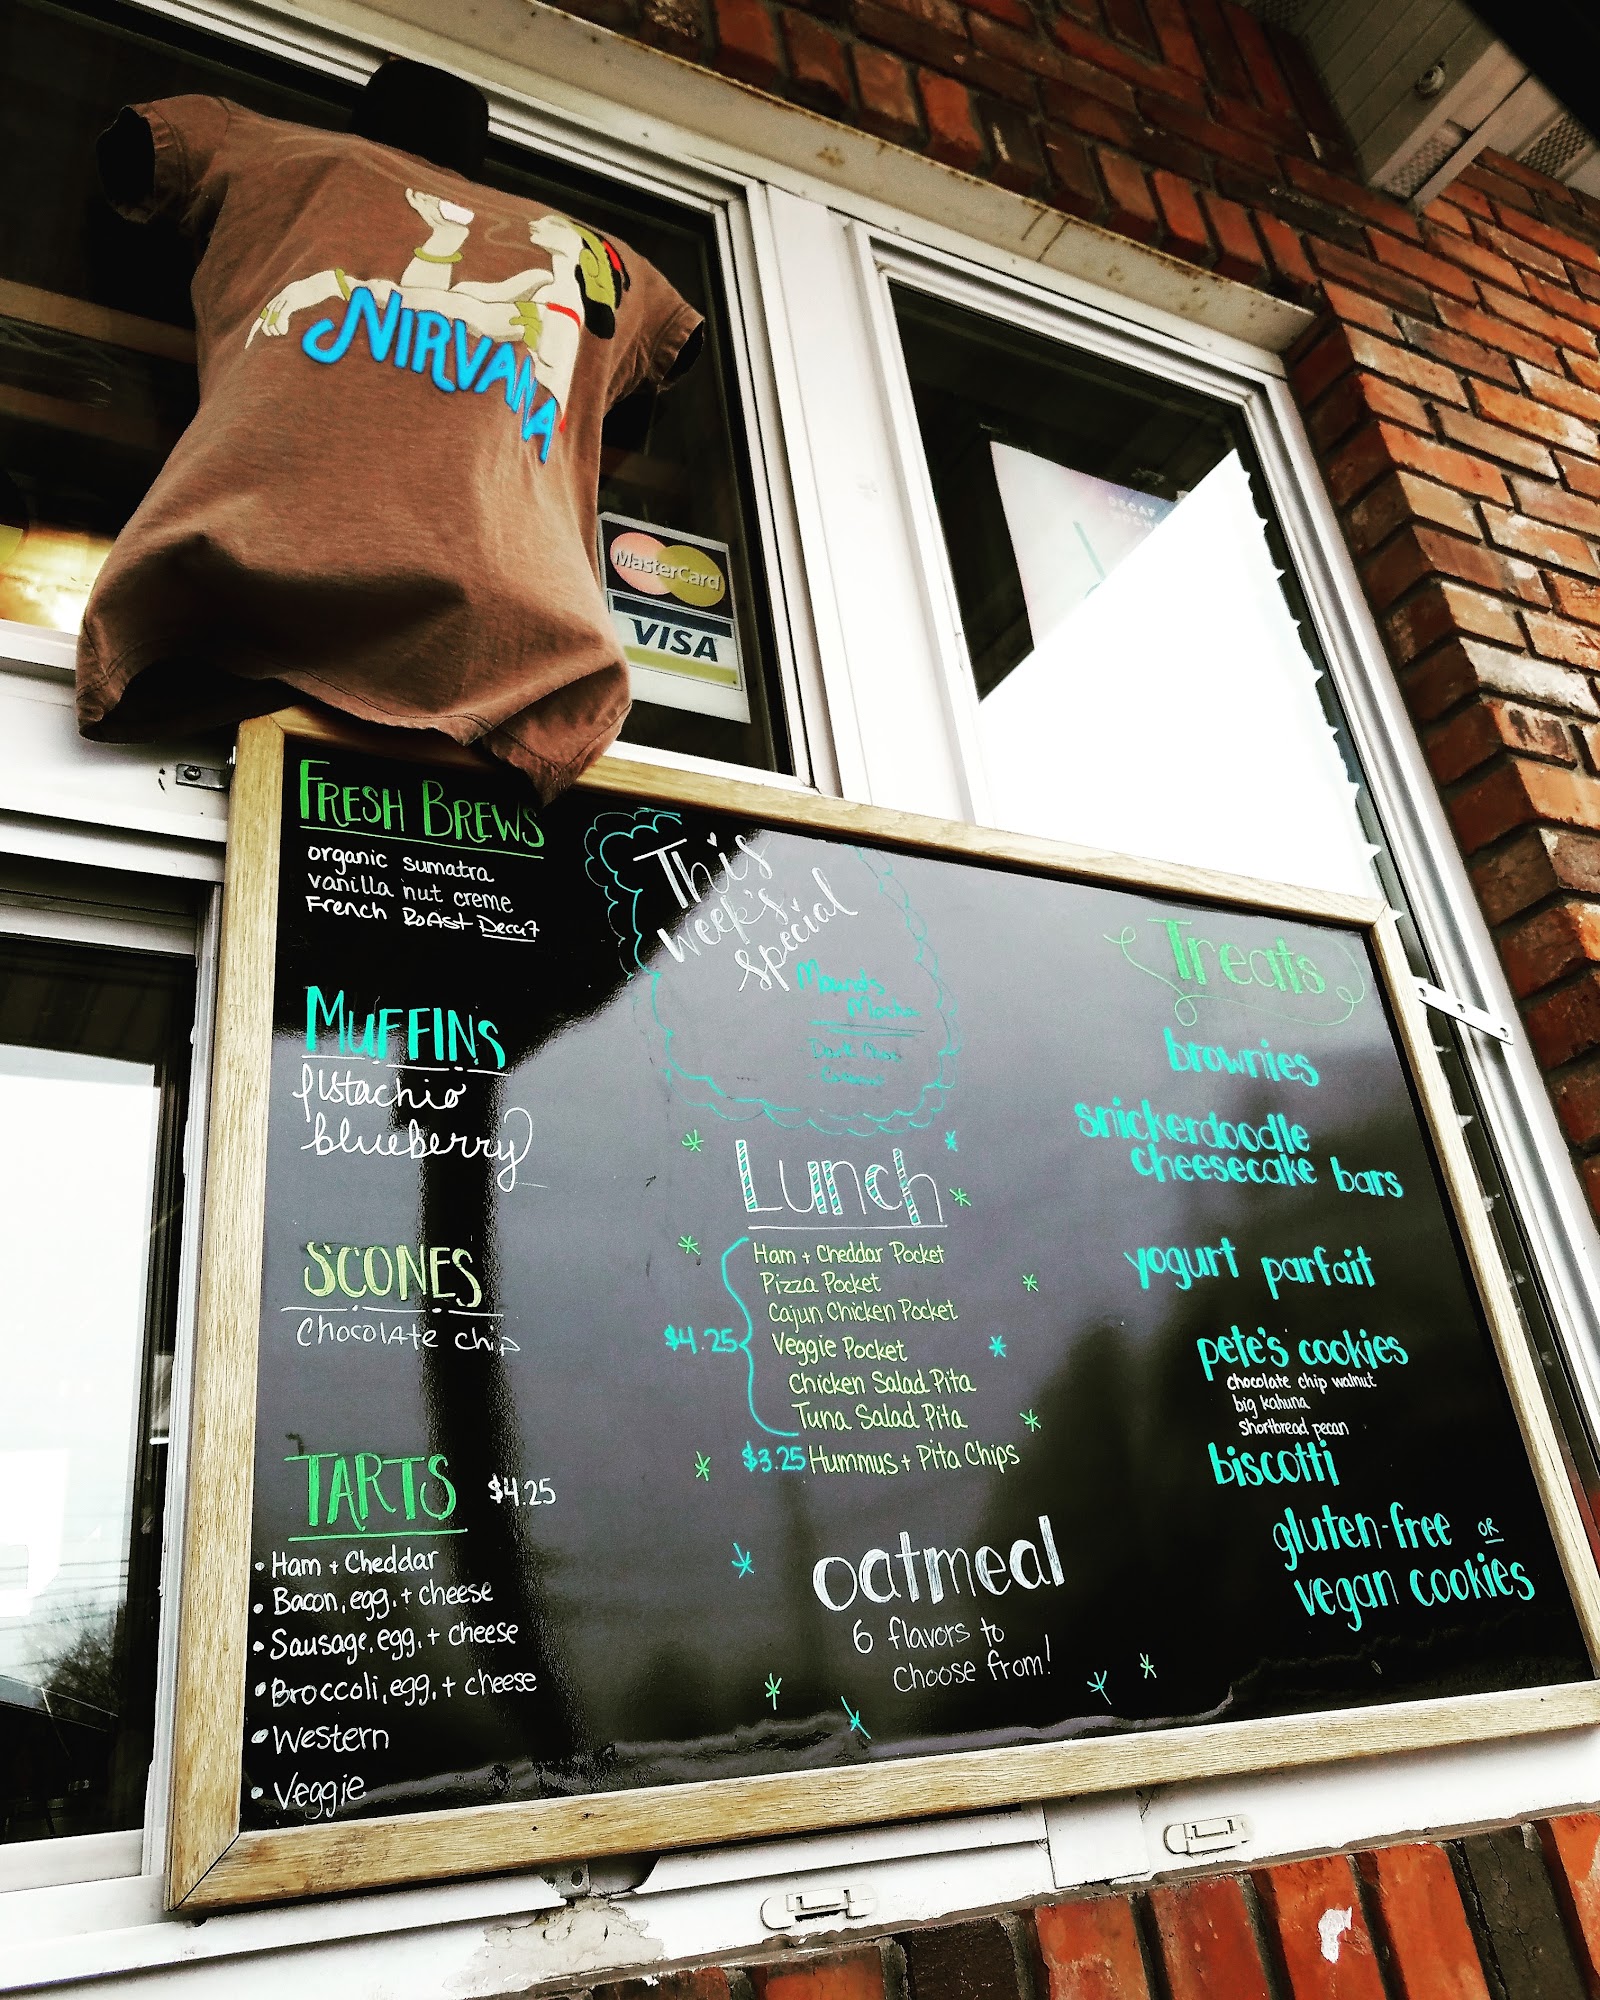 NIRVANA
MasterCard
VISA
DECAF
FRESH BREWS
organic sumatra
vanilla nut creme
French Roast Decaf
MUFFINS
pistachio
blueberry
SCONES
Chocolate chip
TARTS $4.25
• Ham + Cheddar
• Bacon, egg, + cheese
• Sausage, egg, + cheese
• Broccoli, egg, + cheese
• Western
• Veggie
This
week's
special
Mounds
Mocha
Dark Choc
- Coconut
Lunch
Ham + Cheddar Pocket
Pizza Pocket
Cajun Chicken Pocket
$4.25 Veggie Pocket
Chicken Salad Pita
Tuna Salad Pita
$3.25 Hummus + Pita Chips
oatmeal
6 flavors to
choose from!
Treats
brownies
snickerdoodle
cheesecake bars
yogurt parfait
pete's cookies
chocolate chip walnut
big kahuna
shortbread pecan
biscotti
gluten-free OR
vegan cookies